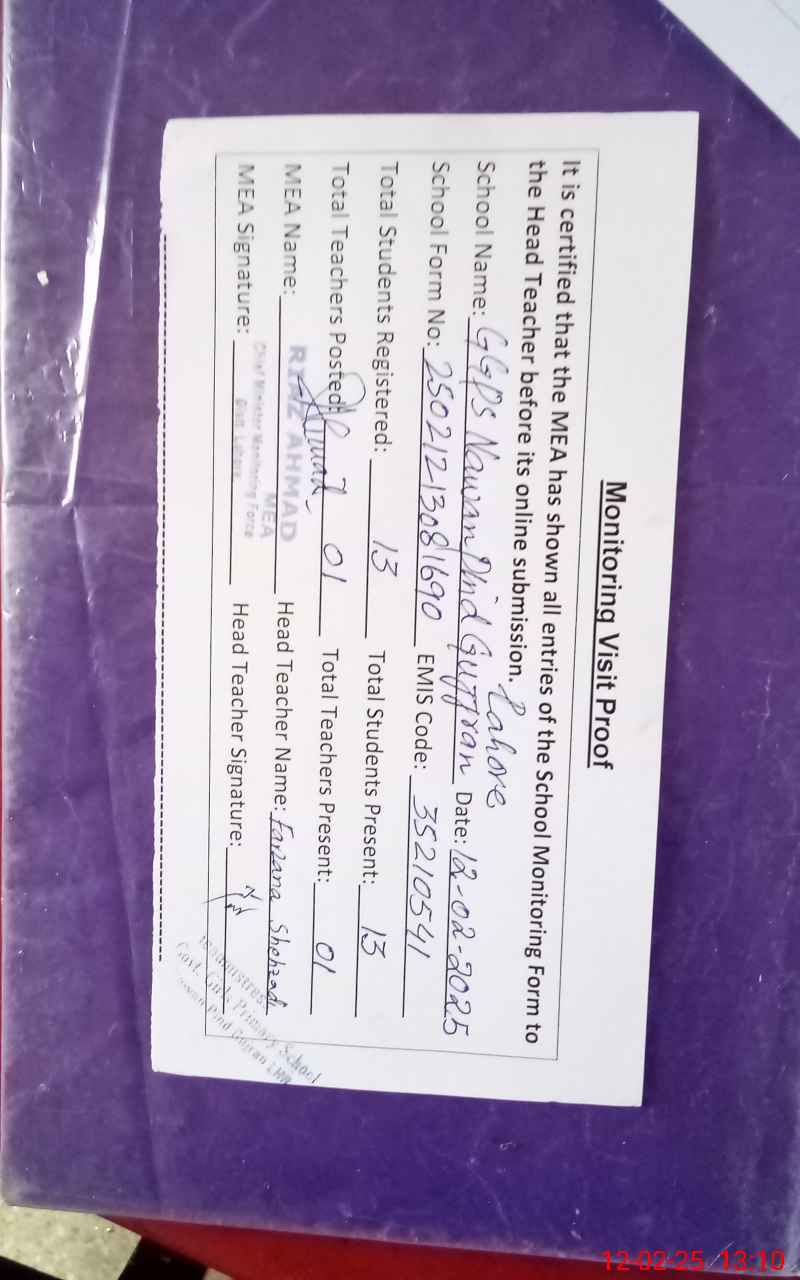 Monitoring Visit Proof
It is certified that the MEA has shown all entries of the School Monitoring Form to
the Head Teacher before its online submission.
Lahore
School Name: GGPS Nawan Pind Gujjran Date: 12-02-2025
School Form No: 25021213081690 EMIS Code: 35210541
Total Students Registered: 13 Total Students Present: 13
Total Teachers Posted: 01 Total Teachers Present: 01
MEA Name: Head Teacher Name: Farzana Shehzadi
RIAZ AHMAD
MEA
Chief Minister Monitoring Force
Distt. Lahore
MEA Signature: Head Teacher Signature:
Headmistress
Govt. Girls Primary School
Pind Gujran LHR
12-02-25 13:10